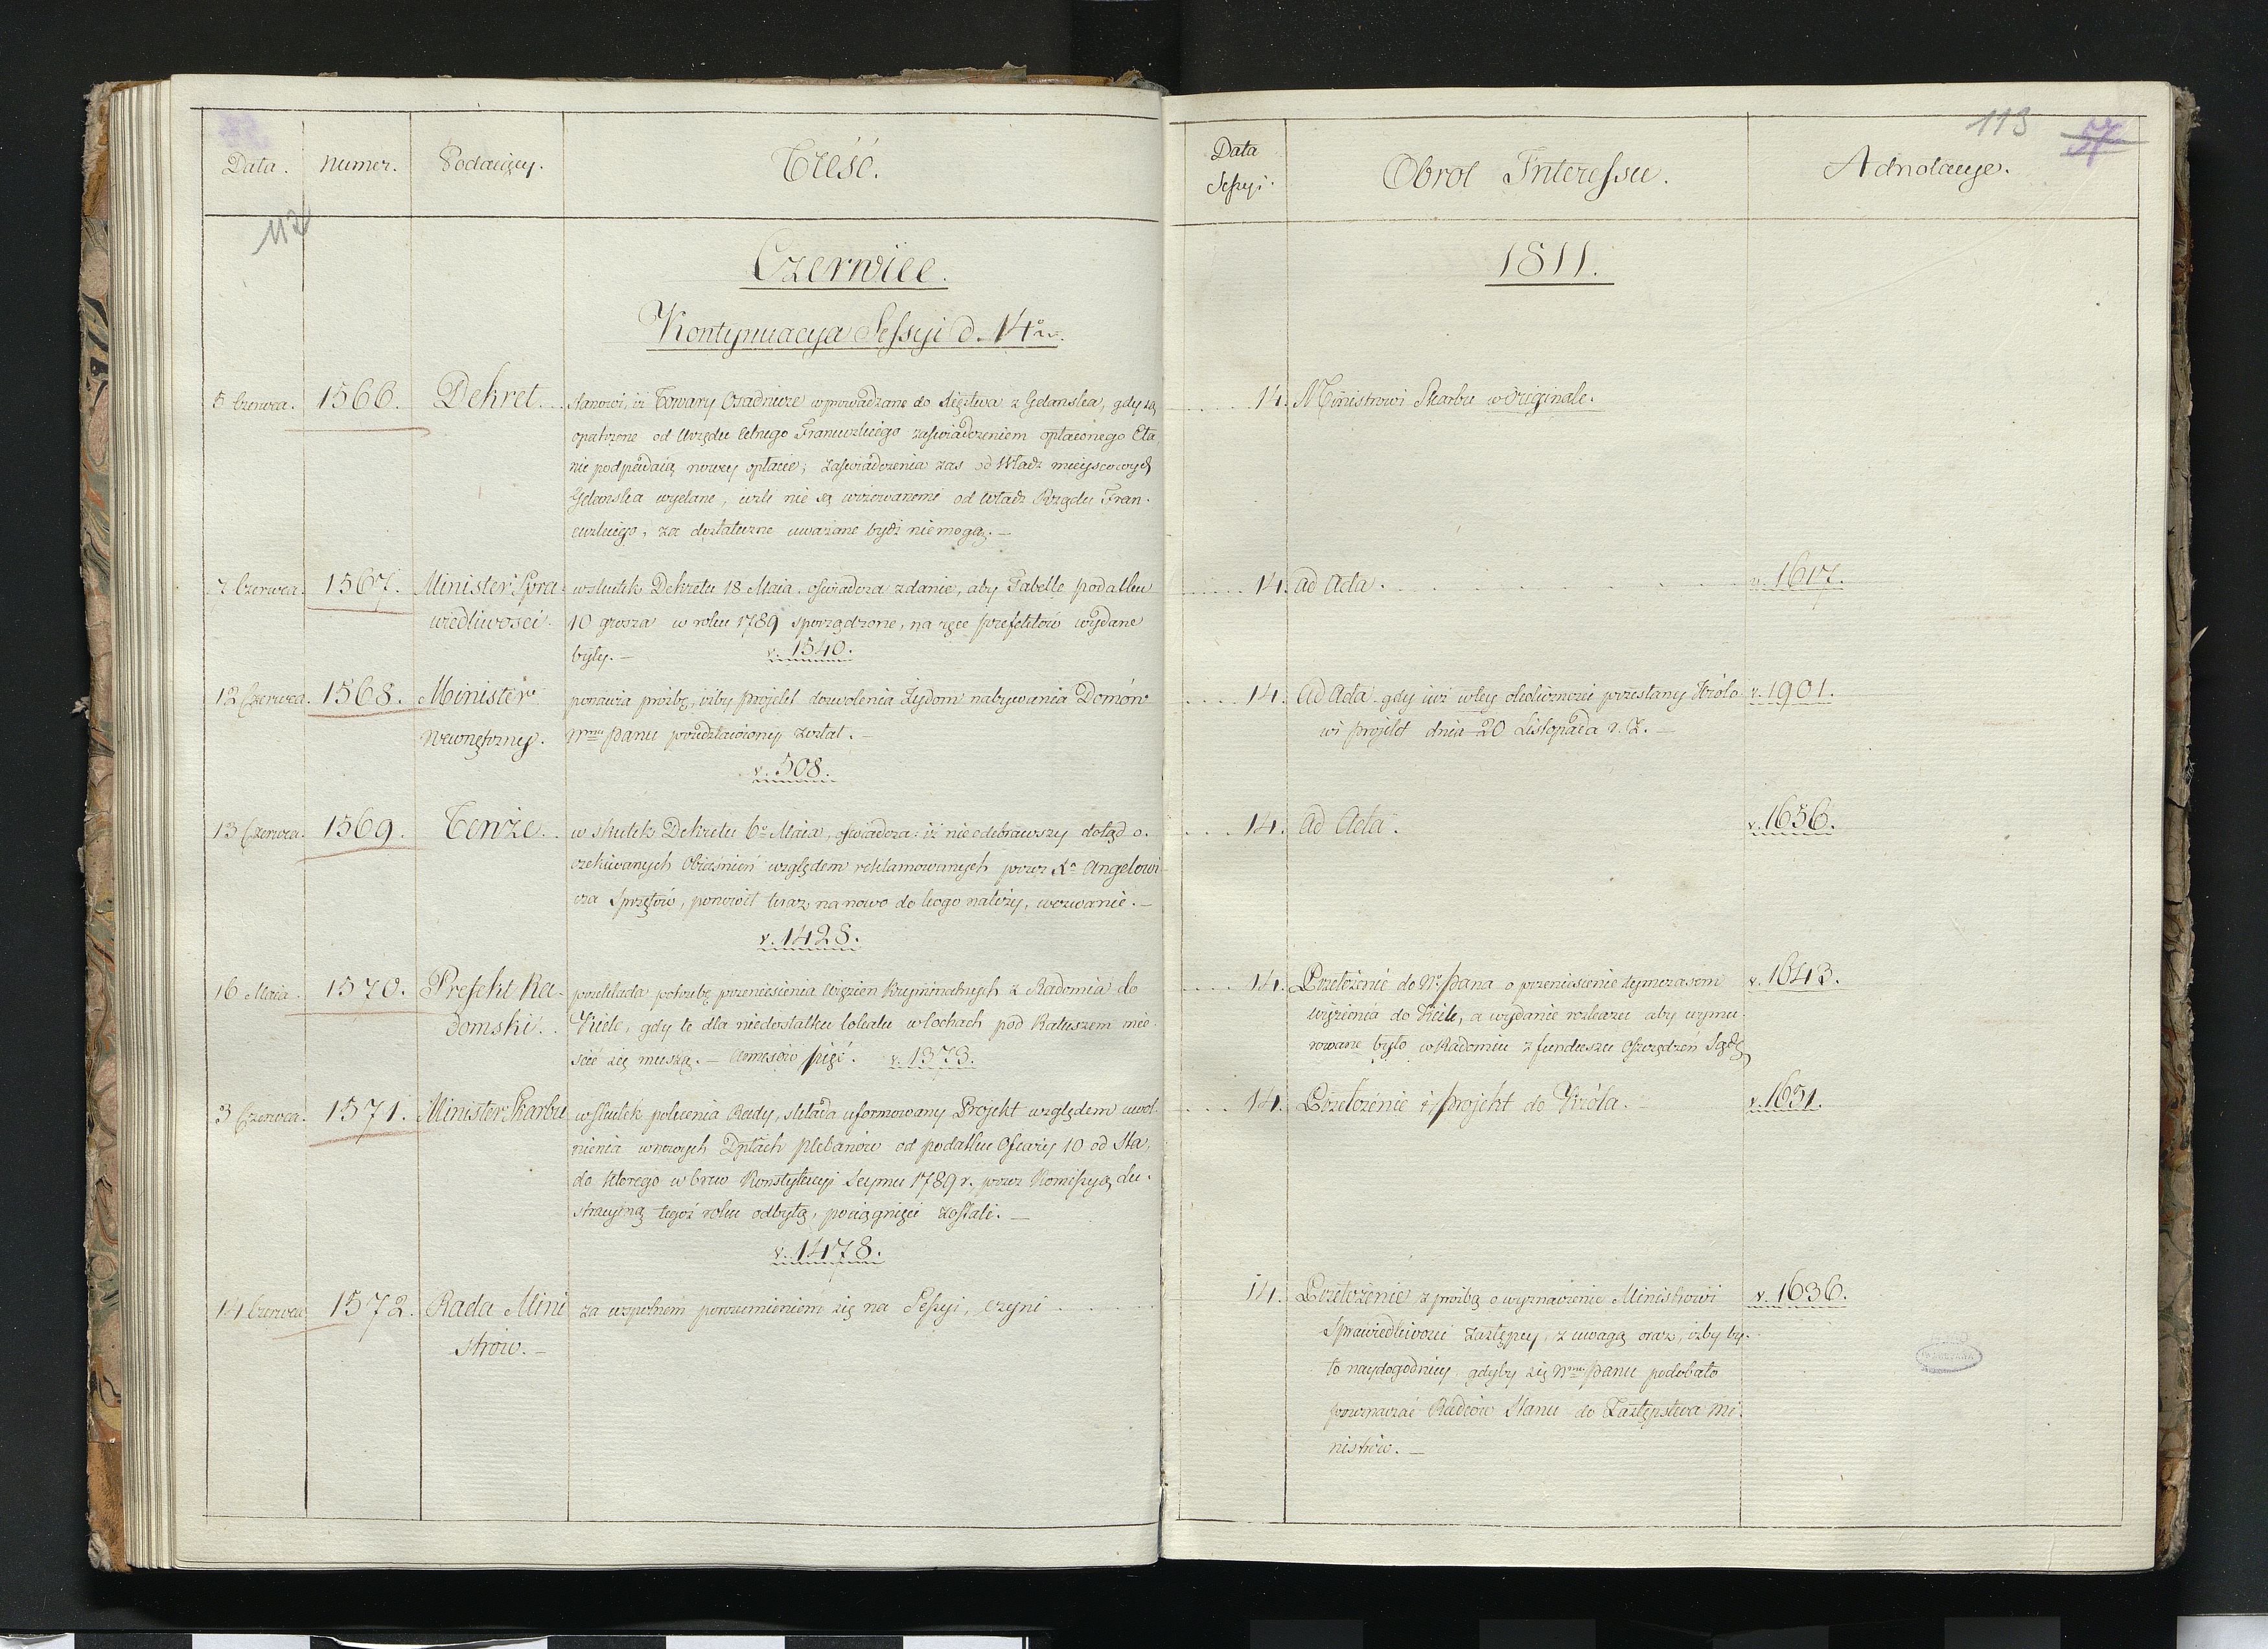 Data. Numer. Podaiący. Treść.
112
Czerwiec.
Kontynuacya Sessyi d. 14º rn.
5 Czerwca. 1566. Dekret. stanowi, iż Towary Osadnicze wprowadzane do Xięztwa z Gdanska, gdy są
opatrzone od Urzędu Celnego Francuzkiego zaświadczeniem opłaconego Cła,
nie podpadaią nowey opłacie; zaświadczenia zas od Władz mieyscowych
Gdanska wydane, ieżli nie są wizowanemi od Władz Rządu Fran-
cuzkiego, za dostateczne uważane bydź niemogą. —
7 Czerwca. 1567. Minister Spra- wskutek Dekretu 18 Maia, oświadcza zdanie, aby Tabelle podatku
wiedliwosci. 10 grosza w roku 1789 sporządzone, na ręce Prefektów wydane
były. — v. 1540.
12 Czerwca. 1568. Minister ponawia prośbę, iżby Projekt dozwolenia Żydom nabywania Domów
Wewnętrzny. Nmu Panu przedstawiony został. —
v. 508.
13 Czerwca. 1569. Tenże. w skutek Dekretu 6º Maia, oświadcza: iż nie odebrawszy dotąd o-
czekiwanych Obiaśnień względem reklamowanych przez Xa Angelowi-
cza Sprzętów, ponowił teraz na nowo do kogo należy, wezwanie. —
v. 1428.
16 Maia. 1570. Prefekt Ra- przekłada potrzebę przeniesienia Więzien Kryminalnych z Radomia do
domski. Kielc, gdy te dla niedostatku lokalu w lochach pod Ratuszem mie-
ścić się muszą. — Annexów pięć. v. 1373.
3 Czerwca. 1571. Minister Skarbu wskutek polecenia Rady, składa uformowany Projekt względem uwol-
nienia w nowych Dptach plebanów od podatku Ofiary 10 od Sta,
do którego wbrew Konstytucyi Seymu 1789 r. przez Komissyą Lu-
stracyiną tegoż roku odbytą, pociągnięci zostali. —
v. 1478.
14 Czerwca 1572. Rada Mini za wspolnem porozumieniem się na Sessyi, czyni
strow. —
113 57
Data Sessyi. Obrot Interessu. Adnotacye.
1811.
14. Ministrowi Skarbu w Originale.
14. Ad Acta. v. 1617.
14. Ad Acta gdy iuż w tey okoliczności przesłany Królo- v. 1901.
wi Projekt dnia 20 Listopada r. z. —
14. Ad Acta. v. 1656.
14. Przełożenie do N. Pana o przeniesienie tymczasem v. 1643.
więzienia do Kielc, a wydanie rozkazu aby wymu-
rowane było w Radomiu z funduszu Oszczędzeń Sądo
14. Przełożenie i Projekt do Króla. — v. 1651.
14. Przełożenie z prośbą o wyznaczenie Ministrowi v. 1636.
Sprawiedliwości Zastępcy, z uwagą oraz, iżby by-
ło naydogodniey gdyby się Nmu Panu podobało
przeznaczać Radców Stanu do Zastępstwa Mi-
nistrów. —